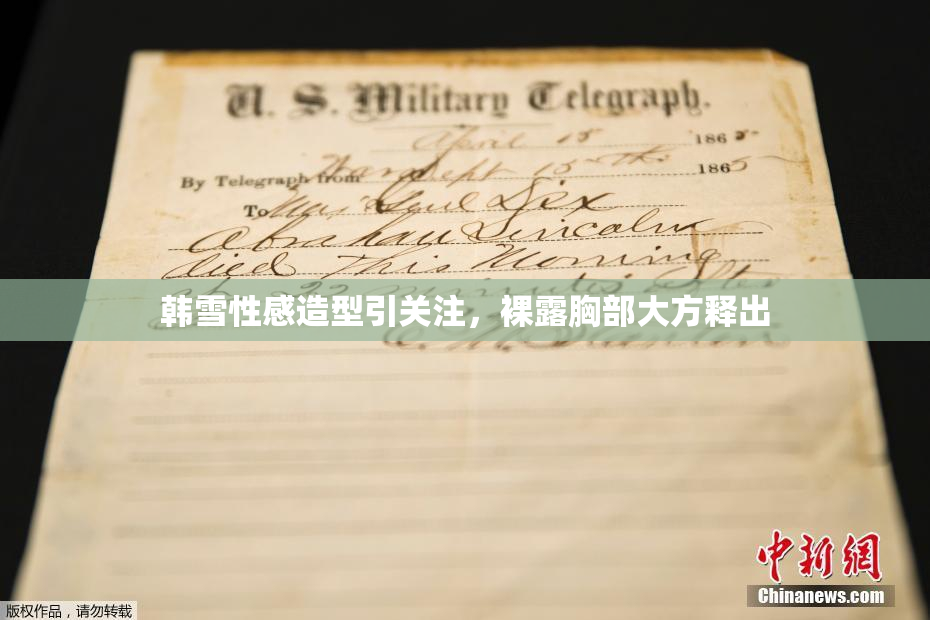 U. S. Military Telegraph.
April 15 1865
By Telegraph from War Dept 15th 1865
To Maj Genl Dix
Abraham Lincoln
died This Morning
at 22 minutes after
韩雪性感造型引关注，裸露胸部大方释出
E. M. Stanton
中新网
Chinanews.com
版权作品，请勿转载